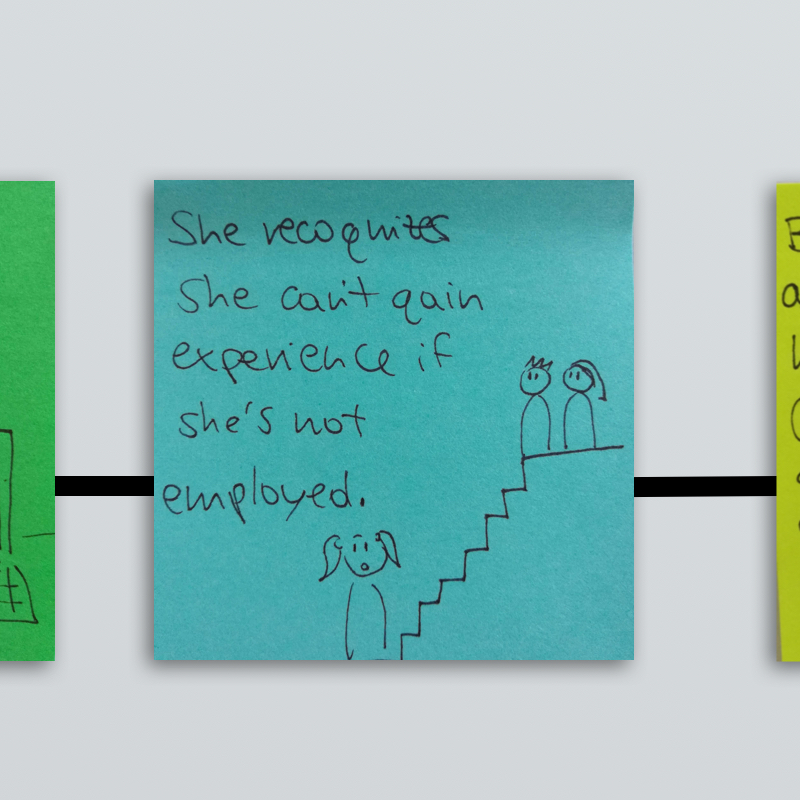 She recognizes
She can't gain
experience if
she's not
employed.